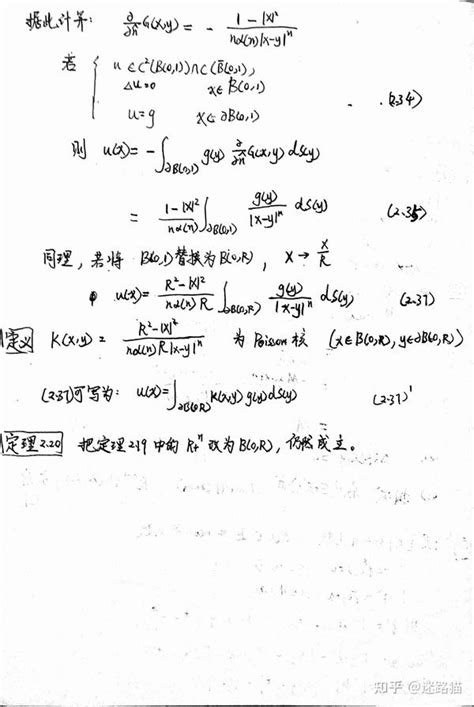 据此计算: ∂/∂n G(x,y) = - (1-|x|²)/(nα(n)|x-y|ⁿ)
若 { u∈C²(B(0,1))∩C(B̄(0,1)),
Δu=0 x∈B(0,1) (2.34)
u=g x∈∂B(0,1)
则 u(x)=-∫_{∂B(0,1)} g(y) ∂/∂n G(x,y) dS(y)
= (1-|x|²)/(nα(n)) ∫_{∂B(0,1)} g(y)/|x-y|ⁿ dS(y) (2.35)
同理, 若将 B(0,1)替换为B(0,R), x→x/R
u(x)= (R²-|x|²)/(nα(n)R) ∫_{∂B(0,R)} g(y)/|x-y|ⁿ dS(y) (2.37)
定义 K(x,y)= (R²-|x|²)/(nα(n)R|x-y|ⁿ) 为 Poisson 核 (x∈B(0,R), y∈∂B(0,R))
(2.37)可写为: u(x)=∫_{∂B(0,R)} K(x,y)g(y)dS(y) (2.37)'
定理2.20 把定理2.19中的 R₊ⁿ 改为B(0,R), 仍然成立。
知乎 @迷路猫